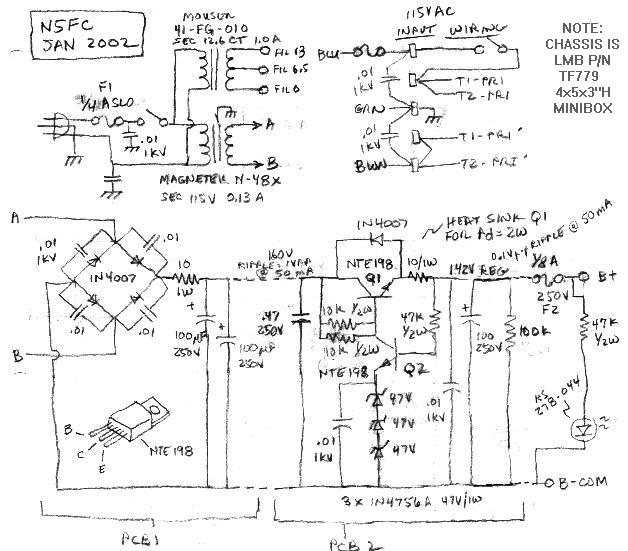 N5FC
JAN 2002
MOUSER
41-FG-010
SEC 12.6 CT 1.0A
FIL 13
FIL 6.5
FIL 0
F1
1/4 A SLO
.01
1KV
A
B
MAGNETEK N-48X
SEC 115V 0.13A
115VAC
INPUT WIRING
BLU
.01
1KV
T1-PRI
T2-PRI
GRN
.01
1KV
T1-PRI'
BWN
T2-PRI'
NOTE:
CHASSIS IS
LMB P/N
TF779
4x5x3"H
MINIBOX
A
.01
1KV
.01
1N4007
.01
.01
B
10
1W
160V
RIPPLE = 1VPP
@ 50 MA
+
100µF
250V
+
100µF
250V
.47
250V
1N4007
HEAT SINK Q1
FOR Pd = 2W
NTE198
Q1
10/1W
142V
REG
0.1V PP RIPPLE @ 50MA
1/8 A
B+
250V
F2
10K 1/2W
10K 1/2W
47K
1/2W
NTE198
Q2
+
100
250V
100K
47K
1/2W
.01
1KV
47V
47V
47V
.01
1KV
RS
278-044
B
C
E
NTE198
B-COM
3 x 1N4756A 47V/1W
PCB1
PCB2